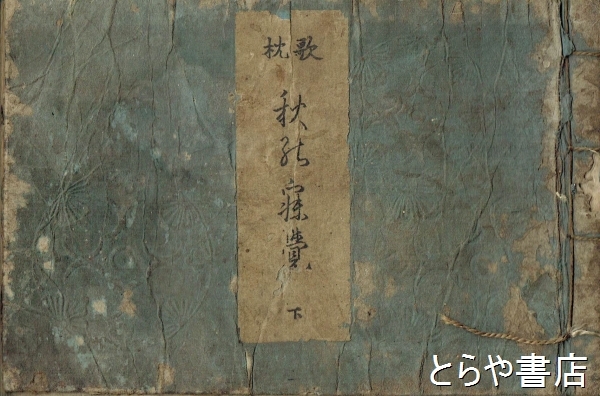 歌枕
秋能寐覺
下
とらや書店